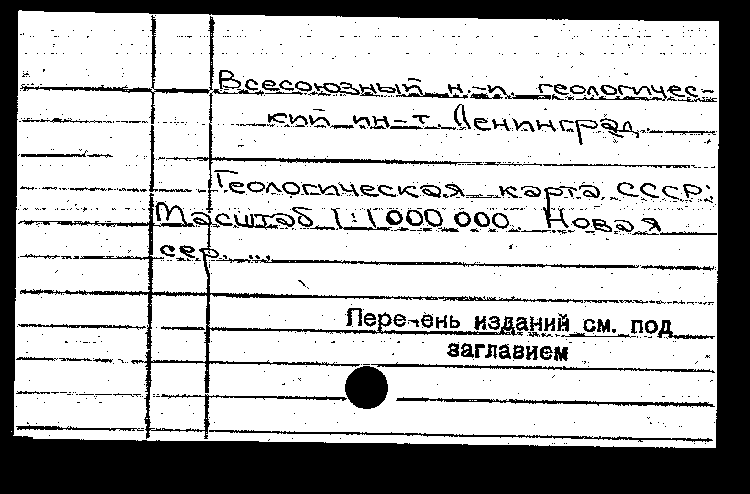 Всесоюзный н.-и. геологичес-
кий ин-т. Ленинград.
Геологическая карта СССР:
Масштаб 1:1000 000. Новая
сер. ...
Перечень изданий см. под
заглавием